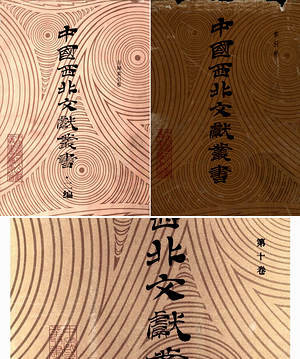 中國西北文獻叢書·二編
中國西北文獻叢書
西北文獻
第十卷